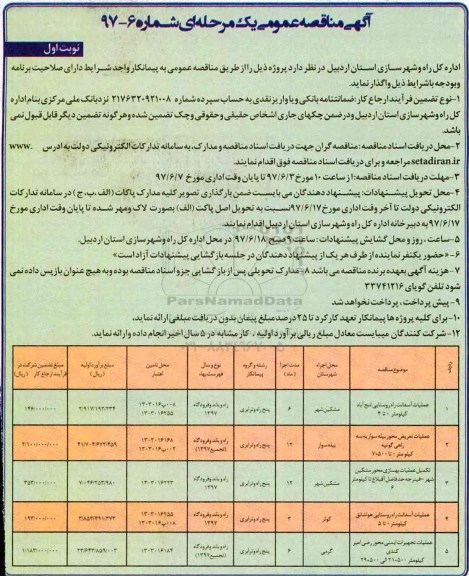 آگهی مناقصه عمومی یک مرحله‌ای شماره ۶-۹۷
نوبت اول
اداره کل راه و شهرسازی استان اردبیل در نظر دارد پروژه ذیل را از طریق مناقصه عمومی به پیمانکار واجد شرایط دارای صلاحیت برنامه
وبودجه باشرایط ذیل واگذار نماید.
۱-نوع تضمین فرآیند ارجاع کار:ضمانتنامه بانکی ویا واریز نقدی به حساب سپرده شماره نزد بانک ملی مرکزی بنام اداره
کل راه و شهرسازی استان اردبیل ودر ضمن چکهای جاری اشخاص حقیقی وحقوقی وچک تضمین شده وهرگونه تضمین دیگر قابل قبول نمی
باشد.
۲-محل دریافت اسناد مناقصه:مناقصه گران جهت دریافت اسناد مناقصه و مدارک،به سامانه تدارکات الکترونیکی دولت به آدرس www.
setadiran.ir مراجعه و برای دریافت اسناد مناقصه فوق اقدام نمایند.
۳-مهلت دریافت اسناد مناقصه:از ساعت ۱۰ مورخ ۹۷/۶/۳ تا پایان وقت اداری مورخ ۹۷/۶/۷
۴-محل تحویل پیشنهادات: پیشنهاد دهندگان می بایست ضمن بارگذاری تصویر کلیه مدارک پاکات (الف،ب،ج) در سامانه تدارکات
الکترونیکی دولت تا آخر وقت اداری مورخ ۹۷/۶/۱۷نسبت به تحویل اصل پاکت (الف) بصورت لاک ومهر شده تا پایان وقت اداری مورخ
۹۷/۶/۱۷ به دبیرخانه اداره کل راه وشهرسازی استان اردبیل اقدام نمایند.
۵-ساعت ، روز و محل گشایش پیشنهادات :ساعت ۹صبح ۹۷/۶/۱۸ در محل اداره کل راه وشهرسازی استان اردبیل.
۶-«حضور یکنفر نماینده از طرف هر یک از پیشنهاد دهندگان در جلسه بازگشایی پیشنهادات آزاد است»
۷-هزینه آگهی بعهده برنده مناقصه می باشد ۸-مدارک تحویلی پس از بازگشایی جزو اسناد مناقصه بوده و به هیچ عنوان بازپس داده نمی
شود تلفن گویای ۳۳۷۴۱۲۱۶
۹-پیش پرداخت ، پرداخت نخواهد شد
۱۰-برای کلیه پروژه ها پیمانکار تعهد کارکرد تا ۲۵ درصد مبلغ پیمان بدون دریافت مبلغی ارائه نماید.
۱۲-شرکت کنندگان میبایست معادل مبلغ ریالی برآورد اولیه ، کار مشابه در ۵ سال اخیر انجام داده و ارائه نماید.
ParsNamadData
ردیف موضوع مناقصه محل اجراء شهرستان مدت اجرا (ماه) رشته و گروه پیمانکار نوع و سال فهرست بهاء محل تامین اعتبار مبلغ برآورد اولیه (ریال) مبلغ تضمین شرکت در فرآیند ارجاع کار (ریال)
۱ عملیات آسفالت راه روستایی کیلومتر ۰ تا ۴ مشکین شهر ۶ پنج راه و ترابری راه و باند و فرودگاه ۱۳۹۷
۲ عملیات تعریض محور بیله سوار به سه راهی کیلومتر ۰ تا بیله سوار ۱۲ پنج راه و ترابری راه و باند و فرودگاه (تجمیع ۱۳۹۷)
۳ تکمیل عملیات بهسازی محور مشکین شهر - مشکین شهر ۱۲ پنج راه و ترابری راه و باند و فرودگاه (تجمیع ۱۳۹۷)
۴ عملیات آسفالت راه روستایی کیلومتر ۰ تا ۵ کوثر ۳ پنج راه و ترابری راه و باند و فرودگاه ۱۳۹۷
۵ عملیات تجهیزات ایمنی محور گرمی ۴ پنج راه و ترابری راه و باند و فرودگاه (تجمیع ۱۳۹۷)